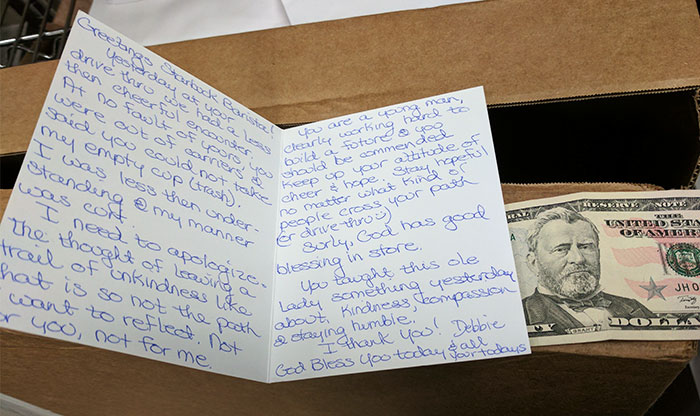 Greetings Starbuck Barista!
Yesterday at your
drive thru we had a less
then cheerful encounter.
At no fault of yours you
were out of carriers &
said you could not take
my empty cup (trash).
I was less then under-
standing & my manner
was curt.
I need to apologize.
The thought of leaving a
trail of unkindness like
that is so not the path
I want to reflect. Not
for you, not for me.
You are a young man,
clearly working hard to
build a future & you
should be commended
Keep up your attitude of
cheer & hope. Stay hopeful
no matter what kind of
people cross your path
(or drive thru :)
Surly, God has good
blessing in store.
You taught this ole
Lady something yesterday
about, kindness, compassion
& staying humble.
I thank You! Debbie
God Bless You today & all
your todays
RESERVE NOTE
THE
UNITED STATES
OF AMERICA
JH
DOLLARS